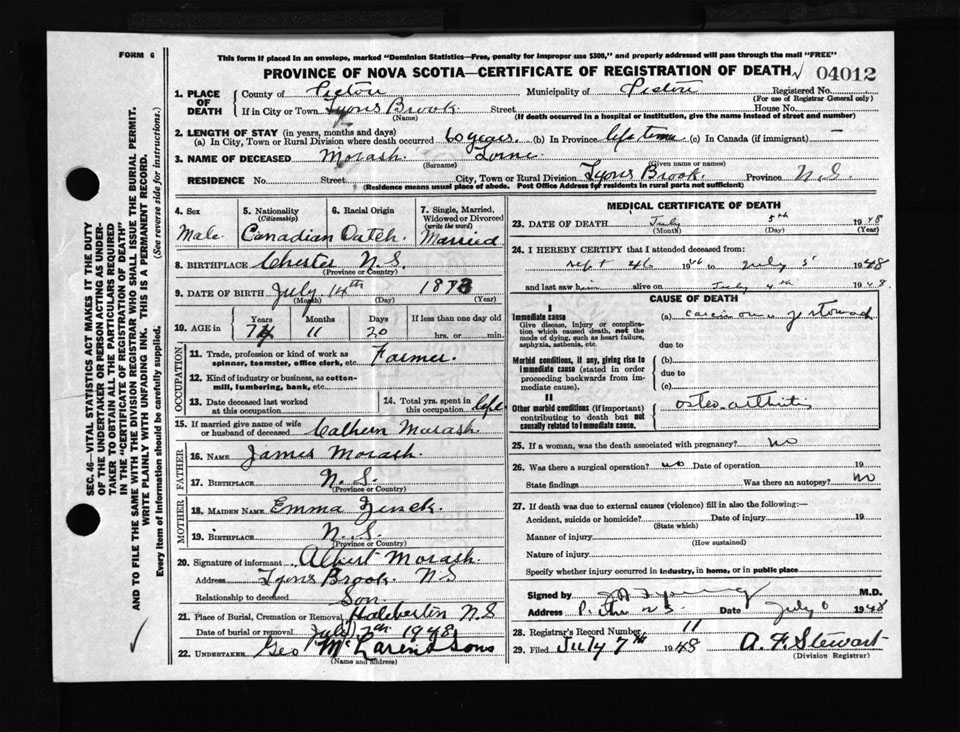 FORM 6
This form if placed in an envelope, marked "Dominion Statistics—Free, penalty for improper use $300," and properly addressed will pass through the mail "FREE"
PROVINCE OF NOVA SCOTIA—CERTIFICATE OF REGISTRATION OF DEATH 04012
1. PLACE OF DEATH County of Pictou Municipality of Pictou Registered No.
(For use of Registrar General only)
If in City or Town Lyons Brook Street House No.
(Name) (If death occurred in a hospital or institution, give the name instead of street and number)
2. LENGTH OF STAY (in years, months and days)
(a) In City, Town or Rural Division where death occurred 60 years (b) In Province life time (c) In Canada (if immigrant) —
3. NAME OF DECEASED Morash Lorne
(Surname) (Given name or names)
RESIDENCE No. Street City, Town or Rural Division Lyons Brook. Province N.S.
(Residence means usual place of abode. Post Office Address for residents in rural parts not sufficient)
4. Sex Male
5. Nationality (Citizenship) Canadian
6. Racial Origin Dutch
7. Single, Married, Widowed or Divorced (write the word) Married
8. BIRTHPLACE Chester N.S.
(Province or Country)
9. DATE OF BIRTH July 14th 1873
(Month) (Day) (Year)
10. AGE in Years 74 Months 11 Days 20 If less than one day old hrs. or min.
OCCUPATION
11. Trade, profession or kind of work as spinner, teamster, office clerk, etc. Farmer.
12. Kind of industry or business, as cotton-mill, lumbering, bank, etc.
13. Date deceased last worked at this occupation
14. Total yrs. spent in this occupation life
15. If married give name of wife or husband of deceased Calhern Morash
FATHER
16. NAME James Morash.
17. BIRTHPLACE N.S.
(Province or Country)
MOTHER
18. MAIDEN NAME Emma Zinck.
19. BIRTHPLACE N.S.
(Province or Country)
20. Signature of informant Albert Morash.
Address Lyons Brook. NS
Relationship to deceased Son.
21. Place of Burial, Cremation or Removal Haliberton N.S
Date of burial or removal July 7th 1948
22. UNDERTAKER Geo McLaren & Sons
(Name and address)
MEDICAL CERTIFICATE OF DEATH
23. DATE OF DEATH July 5th 1948
(Month) (Day) (Year)
24. I HEREBY CERTIFY that I attended deceased from:
Sept 46 1946 to July 5 1948
and last saw him alive on July 4th 1948
CAUSE OF DEATH
I
Immediate cause
Give disease, injury or complication which caused death, not the mode of dying, such as heart failure, asphyxia, asthenia, etc.
(a) carcinoma of stomach
due to
Morbid conditions, if any, giving rise to immediate cause (stated in order proceeding backwards from immediate cause).
(b)
due to
(c)
II
Other morbid conditions (if important) contributing to death but not causally related to immediate cause.
osteo arthritis
25. If a woman, was the death associated with pregnancy? no
26. Was there a surgical operation? no Date of operation 19
State findings Was there an autopsy? No
27. If death was due to external causes (violence) fill in also the following:—
Accident, suicide or homicide? Date of injury 19
(State which)
Manner of injury
(How sustained)
Nature of injury
Specify whether injury occurred in industry, in home, or in public place
Signed by Young M.D.
Address Pictou N.S. Date July 6 1948
28. Registrar's Record Number 11
29. Filed July 7th 1948 A. F. Stewart
(Division Registrar)
SEC. 46—VITAL STATISTICS ACT MAKES IT THE DUTY
OF THE UNDERTAKER OR PERSON ACTING AS UNDER-
TAKER TO OBTAIN ALL THE PARTICULARS REQUIRED
IN THE "CERTIFICATE OF REGISTRATION OF DEATH"
AND TO FILE THE SAME WITH THE DIVISION REGISTRAR WHO SHALL ISSUE THE BURIAL PERMIT.
WRITE PLAINLY WITH UNFADING INK. THIS IS A PERMANENT RECORD.
Every item of information should be carefully supplied. (See reverse side for instructions.)